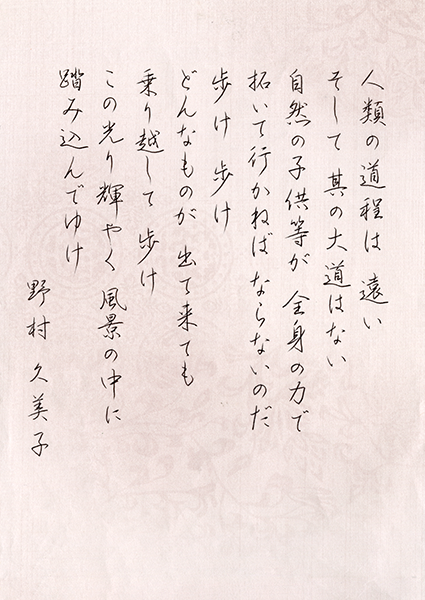 人類の道程は 遠い
そして 其の大道はない
自然の子供等が 全身の力で
拓いて行かねば ならないのだ
歩け 歩け
どんなものが 出て来ても
乗り越して 歩け
この光り輝やく 風景の中に
踏み込んでゆけ
野村 久美子